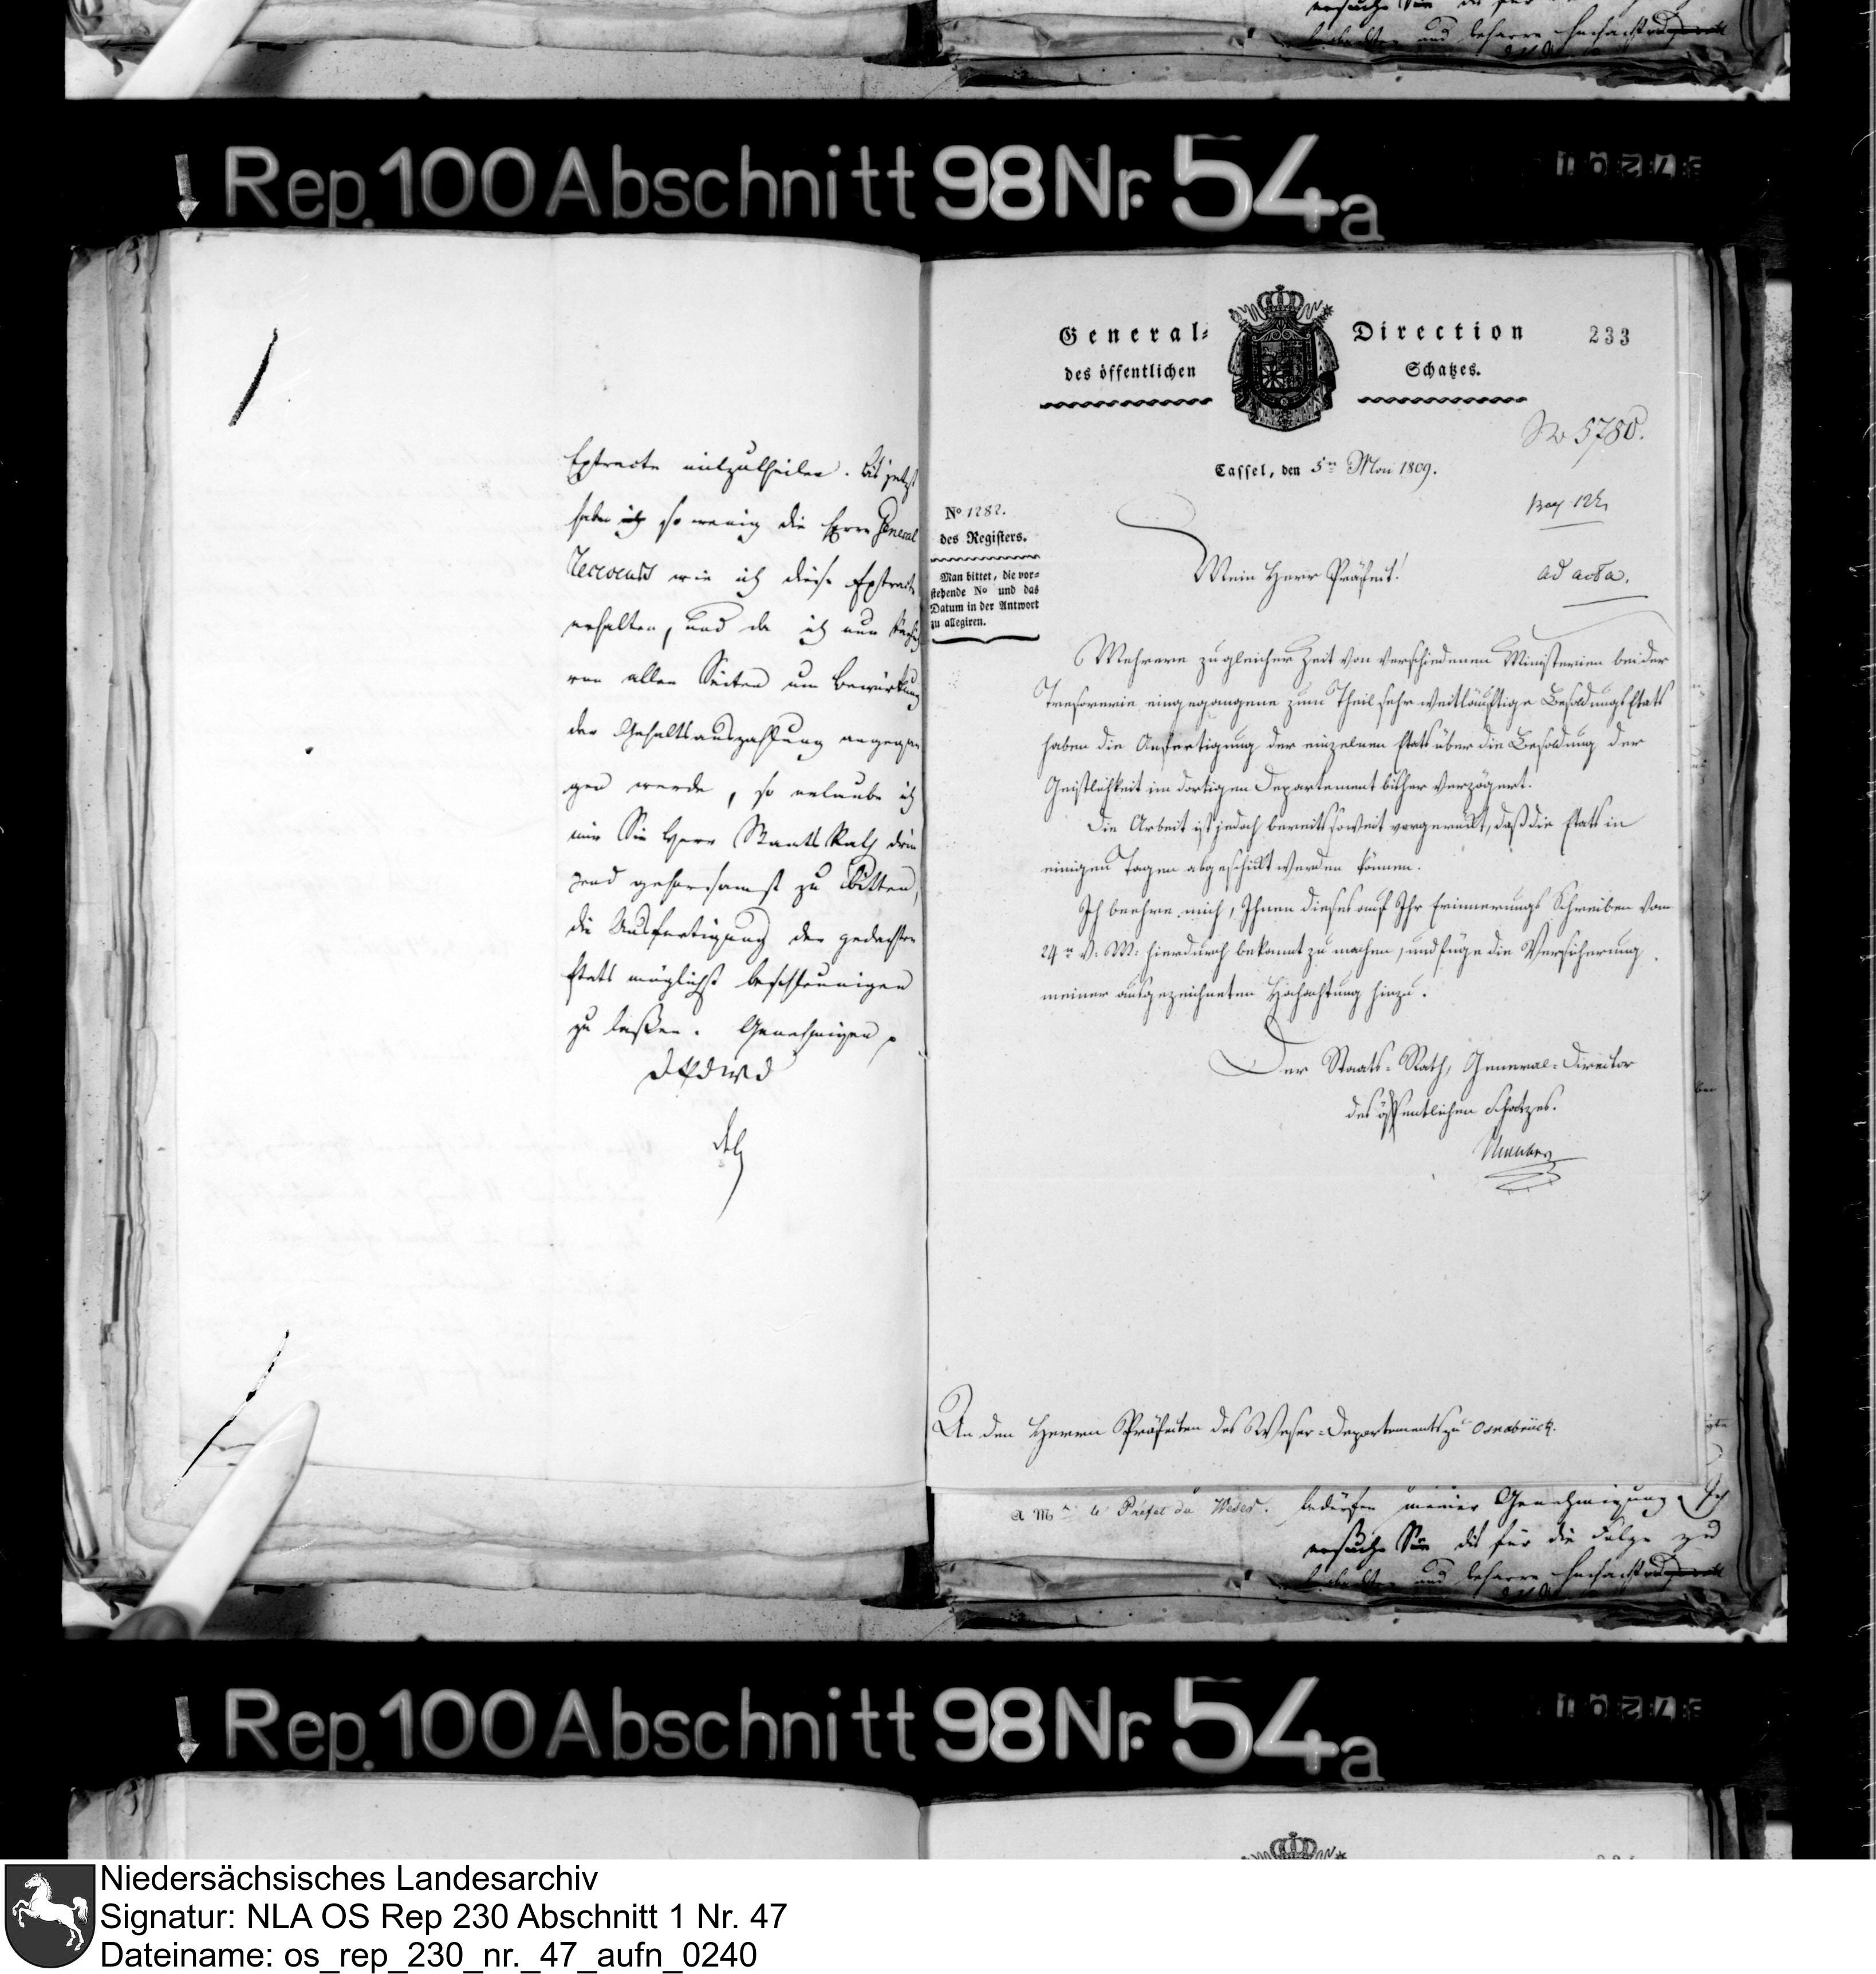 Rep. 100 Abschnitt 98 Nr. 54a
Extracte mitzutheilen. Bis jetzt
habe ich so wenig die Herrn General
wie ich diese Extracte
erhalten, und da ich nun
von allen Seiten um Bewürkung
der Gehaltsauszahlung angegan
gen werde, so erlaube ich
mir Sie Herr Staats Rath drin
gend gehorsamst zu bitten,
die Ausfertigung der gedachten
Etats möglichst beschleunigen
zu laßen. Genehmigen
General= Direction
des öffentlichen Schatzes.
233
No 5780.
Cassel, den 5n Mai 1809.
No 1282.
des Registers.
Man bittet, die vor=
stehende No und das
Datum in der Antwort
zu allegiren.
Mein Herr Präfect!
ad acta.
Mehrere zu gleicher Zeit von verschiedenen Ministerien bei der
Tresorerie eingegangene zum Theil sehr weitläuftige Besoldungs Etats
haben die Anfertigung der einzelnen Etats über die Besoldung der
Geistlichkeit im dortigen Departement bisher verzögert.
Die Arbeit ist jedoch bereits soweit vorgerückt, daß die Etats in
einigen Tagen abgeschickt werden können.
Ich beehre mich, Ihnen dieses auf Ihr Erinnerungs Schreiben vom
24n v. M. hierdurch bekannt zu machen, und füge die Versicherung
meiner ausgezeichneten Hochachtung hinzu.
Der Staats=Rath, General=Director
des öffentlichen Schatzes.
An den Herrn Präfecten des Weser=Departements zu Osnabrück.
A Mr le Préfet du Weser.
bedürfen meiner Genehmigung. Ich
ersuche Sie dis für die Folge zu
und beharre hochachtend
Rep. 100 Abschnitt 98 Nr. 54a
Niedersächsisches Landesarchiv
Signatur: NLA OS Rep 230 Abschnitt 1 Nr. 47
Dateiname: os_rep_230_nr._47_aufn_0240